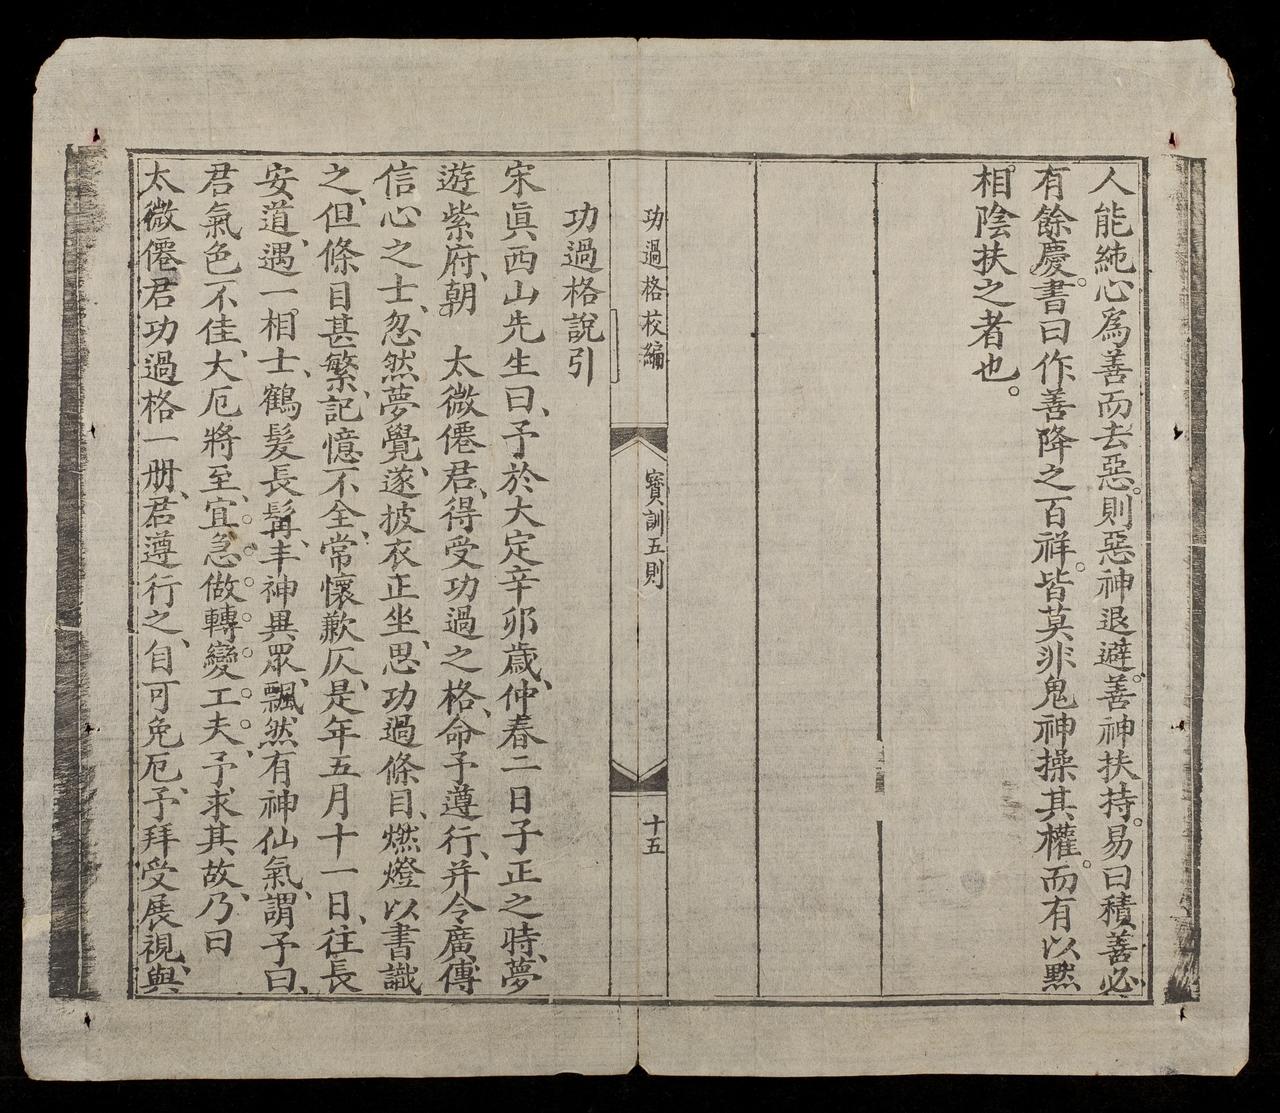 人能純心爲善而去惡。則惡神退避。善神扶持。易曰積善必
有餘慶。書曰作善降之百祥。皆莫非鬼神操其權。而有以黙
相陰扶之者也。
功過格校編
寳訓五則
十五
功過格說引
宋眞西山先生曰、予於大定辛卯歲、仲春二日子正之時、夢
遊紫府、朝　太微僊君、得受功過之格、命予遵行、幷令廣傳
信心之士、忽然夢覺、遂披衣正坐、思功過條目、燃燈以書識
之、但條目甚繁、記憶不全、常懷歉仄、是年五月十一日、往長
安道、遇一相士、鶴髮長髯、丰神異眾、飄然有神仙氣、謂予曰、
君氣色不佳、大厄將至、宜急做轉變工夫、予求其故、乃曰
太微僊君功過格一册、君遵行之、自可免厄、予拜受展視、與